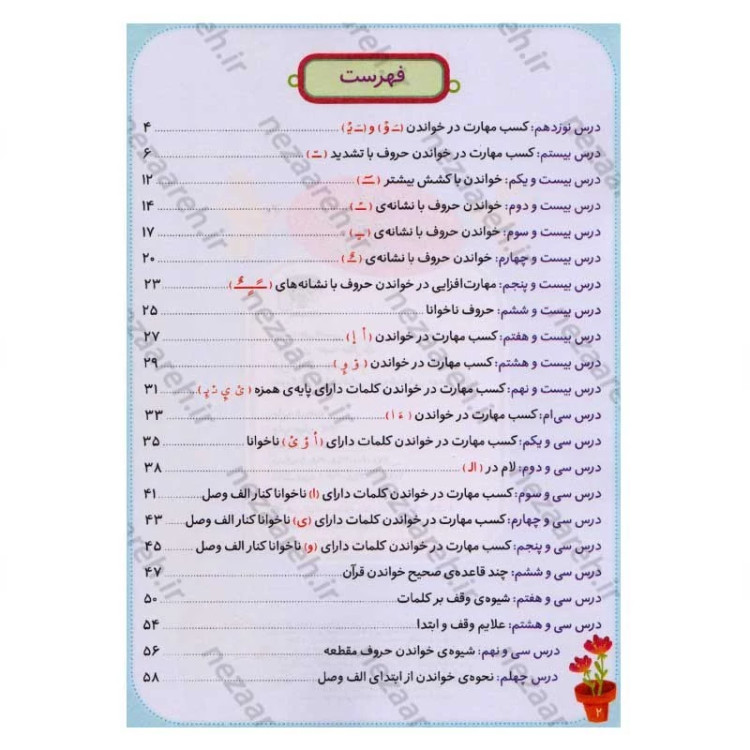 فهرست
درس نوزدهم: کسب مهارت در خواندن (ـَ وْ) و (ـَ یْ) ۴
درس بیستم: کسب مهارت در خواندن حروف با تشدید (ـّ) ۶
درس بیست و یکم: خواندن با کشش بیشتر (ـٓ) ۱۲
درس بیست و دوم: خواندن حروف با نشانه‌ی ۱۴
درس بیست و سوم: خواندن حروف با نشانه‌ی ۱۷
درس بیست و چهارم: خواندن حروف با نشانه‌ی ۲۰
درس بیست و پنجم: مهارت‌افزایی در خواندن حروف با نشانه‌های ۲۳
درس بیست و ششم: حروف ناخوانا ۲۵
درس بیست و هفتم: کسب مهارت در خواندن (أ إ) ۲۷
درس بیست و هشتم: کسب مهارت در خواندن ۲۹
درس بیست و نهم: کسب مهارت در خواندن کلمات دارای پایه‌ی همزه ۳۱
درس سی‌ام: کسب مهارت در خواندن (ءَ ا) ۳۳
درس سی و یکم: کسب مهارت در خواندن کلمات دارای ناخوانا ۳۵
درس سی و دوم: لام در (الـ) ۳۸
درس سی و سوم: کسب مهارت در خواندن کلمات دارای (ا) ناخوانا کنار الف وصل ۴۱
درس سی و چهارم: کسب مهارت در خواندن کلمات دارای (ی) ناخوانا کنار الف وصل ۴۳
درس سی و پنجم: کسب مهارت در خواندن کلمات دارای (و) ناخوانا کنار الف وصل ۴۵
درس سی و ششم: چند قاعده‌ی صحیح خواندن قرآن ۴۷
درس سی و هفتم: شیوه‌ی وقف بر کلمات ۵۰
درس سی و هشتم: علایم وقف و ابتدا ۵۴
درس سی و نهم: شیوه‌ی خواندن حروف مقطعه ۵۶
درس چهلم: نحوه‌ی خواندن از ابتدای الف وصل ۵۸
۲
nezaareh.ir